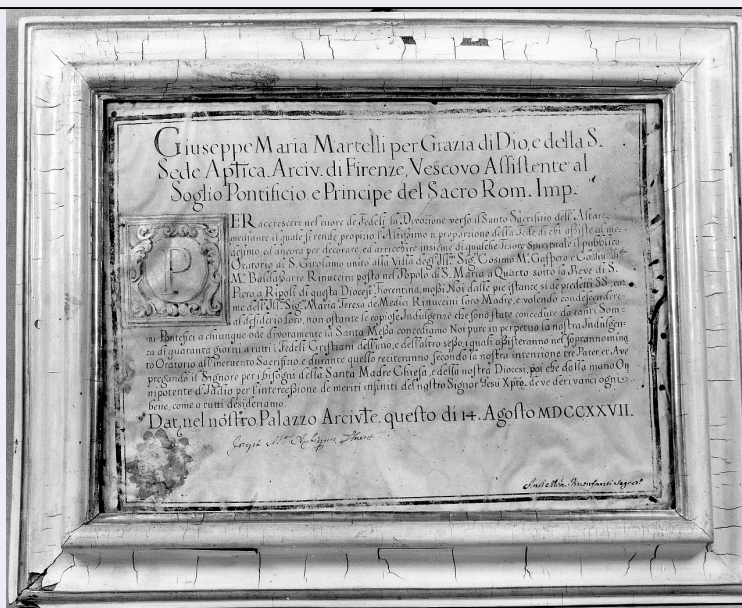 Giuseppe Maria Martelli per Grazia di Dio, e della S.
Sede Aptica. Arciv. di Firenze, Vescovo Assistente al
Soglio Pontificio e Principe del Sacro Rom. Imp.
PER accrescere nel cuore de Fedeli la Divozione verso il Santo Sacrifizio dell'Altare,
mediante il quale si rende propizio l'Altissimo a proporzione della Fede di chi assiste al me-
desimo, ed ancora per decorare, ed arricchire insieme di qualche Tesoro Spirituale il pubblico
Oratorio di S. Girolamo unito alla Villa degl' Ill. Sig. Cosimo M. Gaspero e
M. Baldassarre Rinuccini posta nel Popolo di S. Maria a Quarto sotto la Pieve di S.
Piero a Ripoli di questa Diocesi Fiorentina, mossi Noi dalle pie istanze si de predetti SS., co-
me dell' Ill. Sig. Maria Teresa de Medici Rinuccini loro Madre, e volendo condescendere
al desiderio loro, non ostante le copiose Indulgenze che sono state concedute da tanti Som-
mi Pontefici a chiunque ode divotamente la Santa Messa concediamo Noi pure in perpetuo la nostra Indulgen-
za di quaranta giorni a tutti i Fedeli Cristiani dell'uno, e dell'altro sesso, i quali assisteranno nel soprannomina-
to Oratorio all'incruento Sacrifizio, e durante quello reciteranno secondo la nostra intenzione tre Pater, et Ave
pregando il Signore per i bisogni della Santa Madre Chiesa, e della nostra Diocesi, poi che dalla mano On-
nipotente d'Iddio per l'intercessione de meriti infiniti del nostro Signor Gesu Xpro. deve derivarci ogni
bene, come a tutti desideriamo.
Dat. nel nostro Palazzo Arcivte. questo dì 14. Agosto MDCCXXVII.